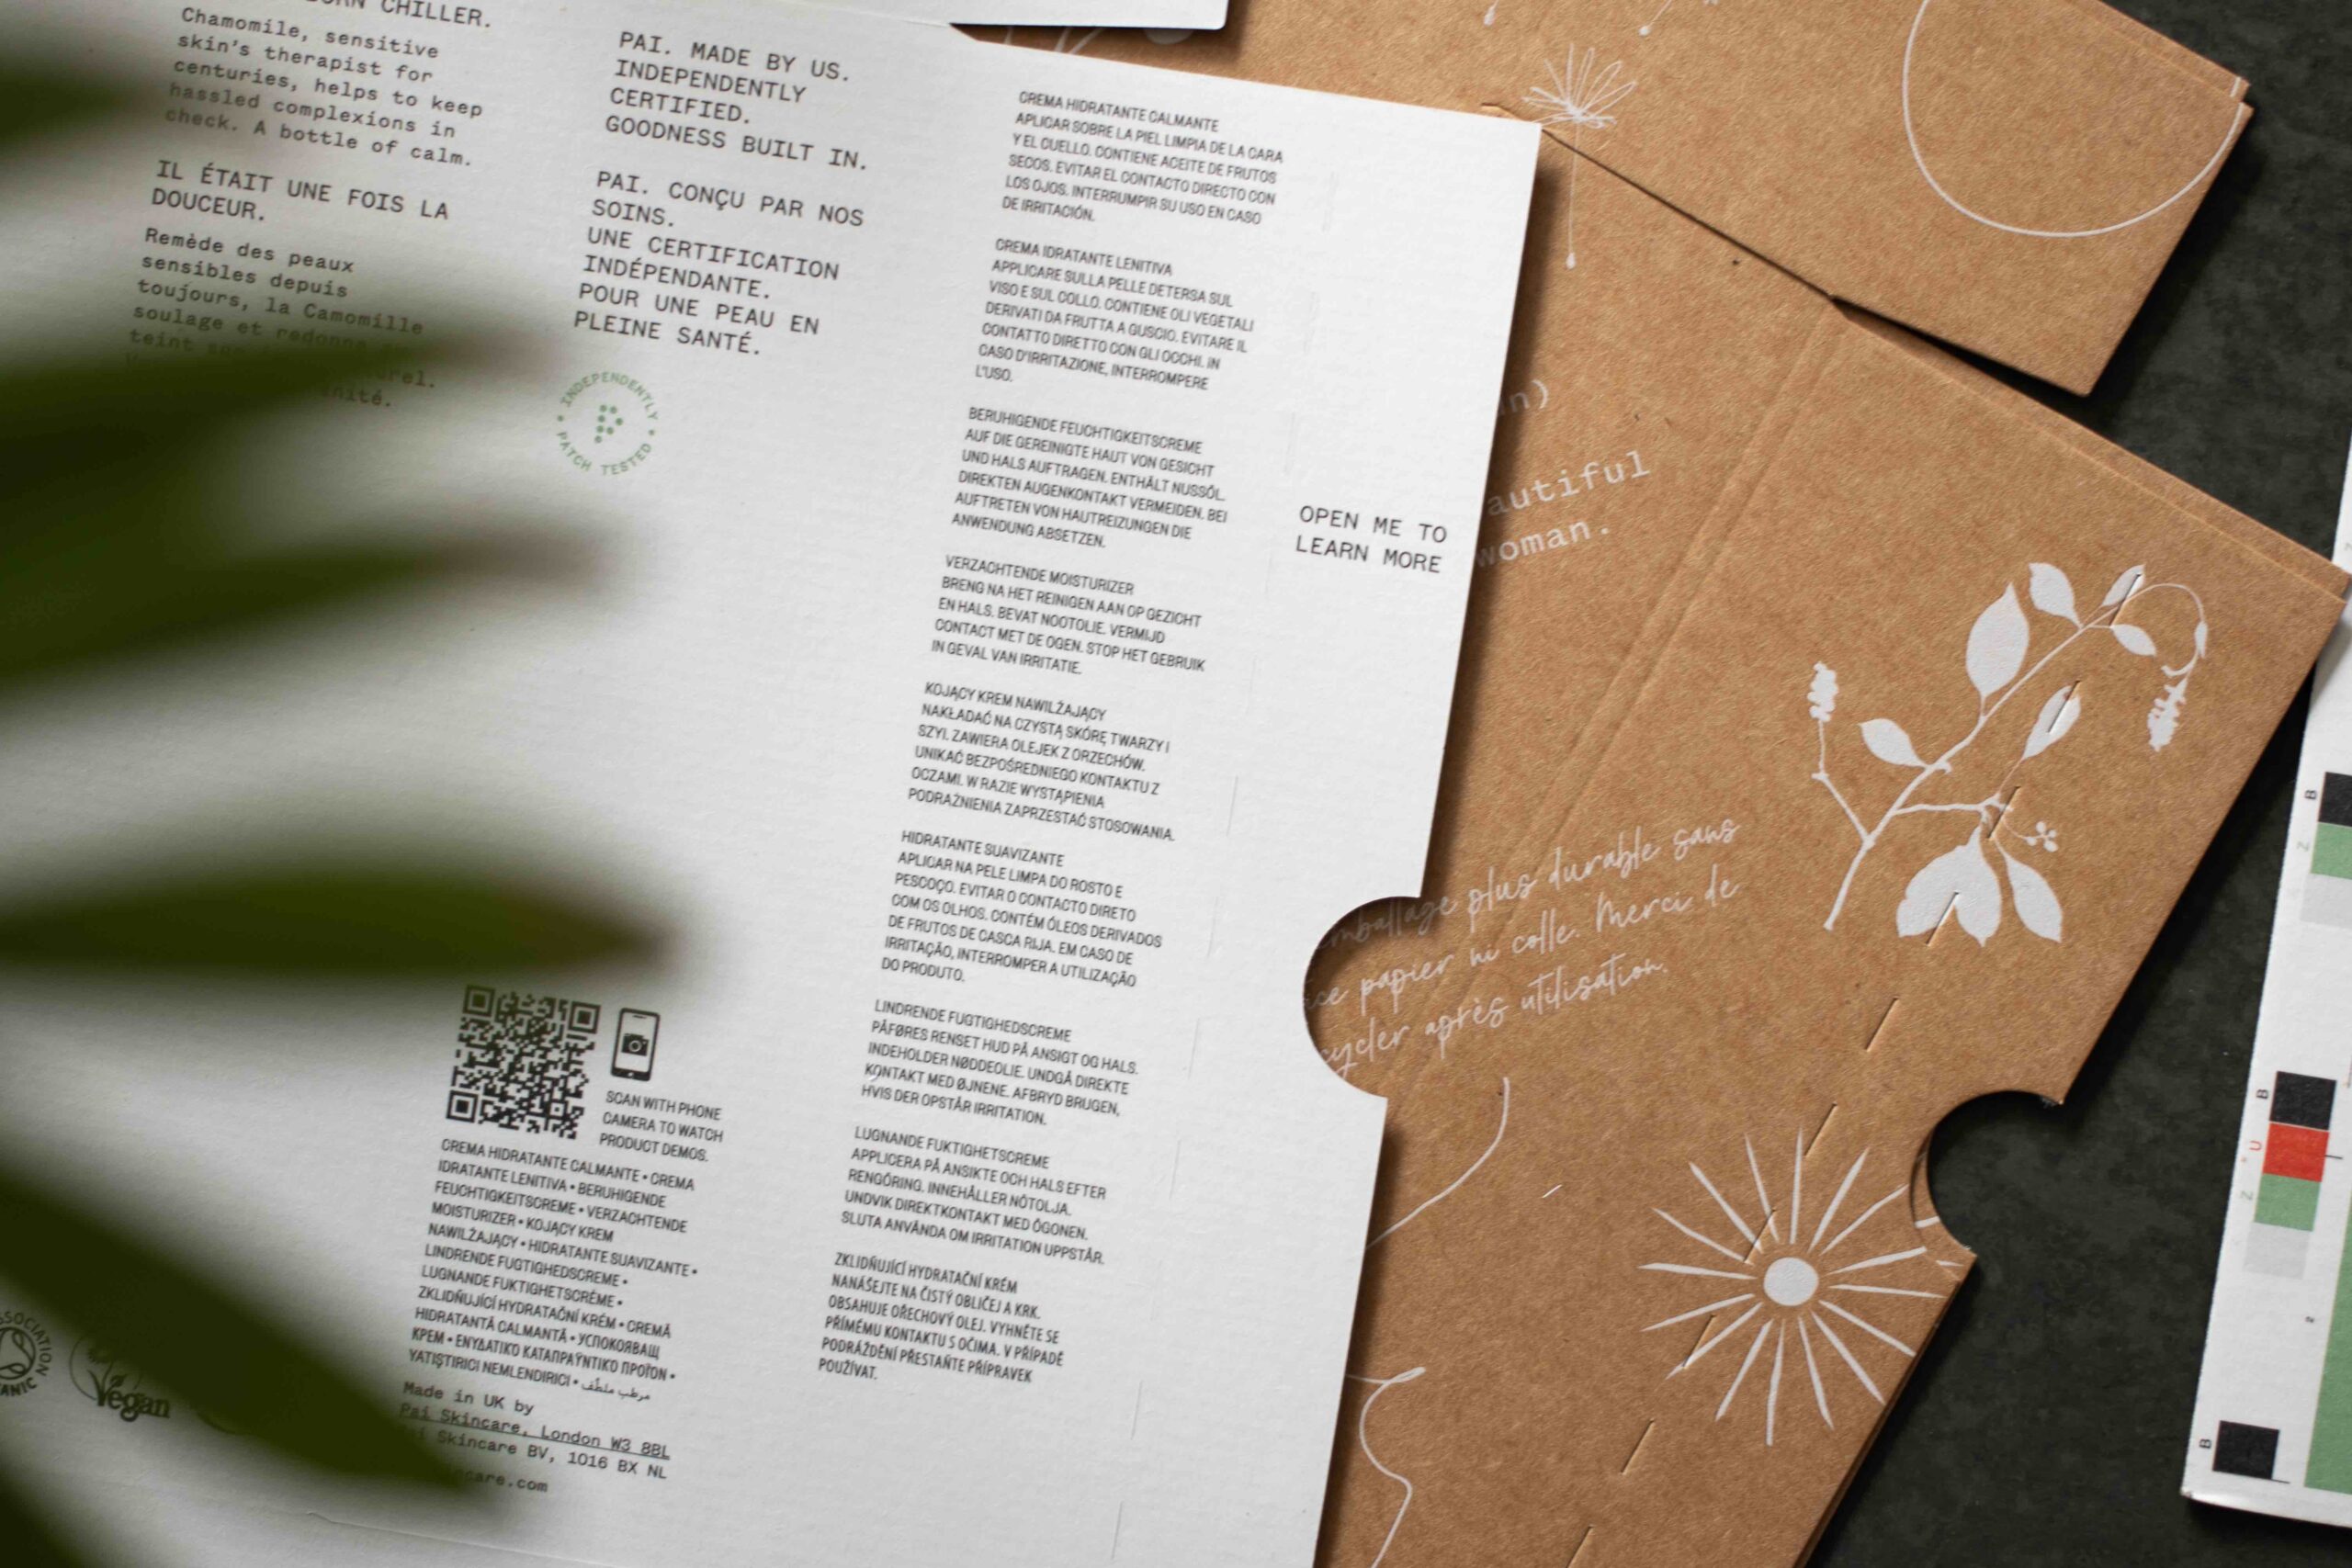 BORN CHILLER.
Chamomile, sensitive
skin's therapist for
centuries, helps to keep
hassled complexions in
check. A bottle of calm.
IL ÉTAIT UNE FOIS LA
DOUCEUR.
Remède des peaux
sensibles depuis
toujours, la Camomille
soulage et redonne
teint
PAI. MADE BY US.
INDEPENDENTLY
CERTIFIED.
GOODNESS BUILT IN.
PAI. CONÇU PAR NOS
SOINS.
UNE CERTIFICATION
INDÉPENDANTE.
POUR UNE PEAU EN
PLEINE SANTÉ.
INDEPENDENTLY
PATCH TESTED
SCAN WITH PHONE
CAMERA TO WATCH
PRODUCT DEMOS.
CREMA HIDRATANTE CALMANTE • CREMA
IDRATANTE LENITIVA • BERUHIGENDE
FEUCHTIGKEITSCREME • VERZACHTENDE
MOISTURIZER • KOJĄCY KREM
NAWILŻAJĄCY • HIDRATANTE SUAVIZANTE •
LINDRENDE FUGTIGHEDSCREME •
LUGNANDE FUKTIGHETSCRÈME •
ZKLIDŇUJÍCÍ HYDRATAČNÍ KRÉM • CREMĂ
HIDRATANTĂ CALMANTĂ • УСПОКОЯВАЩ
КРЕМ • ΕΝΥΔΑΤΙΚΟ ΚΑΤΑΠΡΑΫΝΤΙΚΟ ΠΡΟΪΟΝ •
YATIŞTIRICI NEMLENDIRICI • مرطب ملطّف
Made in UK by
Pai Skincare, London W3 8BL
Skincare BV, 1016 BX NL
ASSOCIATION
Vegan
CREMA HIDRATANTE CALMANTE
APLICAR SOBRE LA PIEL LIMPIA DE LA CARA
Y EL CUELLO. CONTIENE ACEITE DE FRUTOS
SECOS. EVITAR EL CONTACTO DIRECTO CON
LOS OJOS. INTERRUMPIR SU USO EN CASO
DE IRRITACIÓN.
CREMA IDRATANTE LENITIVA
APPLICARE SULLA PELLE DETERSA SUL
VISO E SUL COLLO. CONTIENE OLI VEGETALI
DERIVATI DA FRUTTA A GUSCIO. EVITARE IL
CONTATTO DIRETTO CON GLI OCCHI. IN
CASO D'IRRITAZIONE, INTERROMPERE
L'USO.
BERUHIGENDE FEUCHTIGKEITSCREME
AUF DIE GEREINIGTE HAUT VON GESICHT
UND HALS AUFTRAGEN. ENTHÄLT NUSSÖL.
DIREKTEN AUGENKONTAKT VERMEIDEN. BEI
AUFTRETEN VON HAUTREIZUNGEN DIE
ANWENDUNG ABSETZEN.
VERZACHTENDE MOISTURIZER
BRENG NA HET REINIGEN AAN OP GEZICHT
EN HALS. BEVAT NOOTOLIE. VERMIJD
CONTACT MET DE OGEN. STOP HET GEBRUIK
IN GEVAL VAN IRRITATIE.
KOJĄCY KREM NAWILŻAJĄCY
NAKŁADAĆ NA CZYSTĄ SKÓRĘ TWARZY I
SZYI. ZAWIERA OLEJEK Z ORZECHÓW.
UNIKAĆ BEZPOŚREDNIEGO KONTAKTU Z
OCZAMI. W RAZIE WYSTĄPIENIA
PODRAŻNIENIA ZAPRZESTAĆ STOSOWANIA.
HIDRATANTE SUAVIZANTE
APLICAR NA PELE LIMPA DO ROSTO E
PESCOÇO. EVITAR O CONTACTO DIRETO
COM OS OLHOS. CONTÉM ÓLEOS DERIVADOS
DE FRUTOS DE CASCA RIJA. EM CASO DE
IRRITAÇÃO, INTERROMPER A UTILIZAÇÃO
DO PRODUTO.
LINDRENDE FUGTIGHEDSCREME
PÅFØRES RENSET HUD PÅ ANSIGT OG HALS.
INDEHOLDER NØDDEOLIE. UNDGÅ DIREKTE
KONTAKT MED ØJNENE. AFBRYD BRUGEN,
HVIS DER OPSTÅR IRRITATION.
LUGNANDE FUKTIGHETSCREME
APPLICERA PÅ ANSIKTE OCH HALS EFTER
RENGÖRING. INNEHÅLLER NÖTOLJA.
UNDVIK DIREKTKONTAKT MED ÖGONEN.
SLUTA ANVÄNDA OM IRRITATION UPPSTÅR.
ZKLIDŇUJÍCÍ HYDRATAČNÍ KRÉM
NANÁŠEJTE NA ČISTÝ OBLIČEJ A KRK.
OBSAHUJE OŘECHOVÝ OLEJ. VYHNĚTE SE
PŘÍMÉMU KONTAKTU S OČIMA. V PŘÍPADĚ
PODRÁŽDĚNÍ PŘESTAŇTE PŘÍPRAVEK
POUŽÍVAT.
OPEN ME TO
LEARN MORE
autiful
woman.
emballage plus durable sans
papier ni colle. Merci de
après utilisation.
B
Z
B
U
Z
B